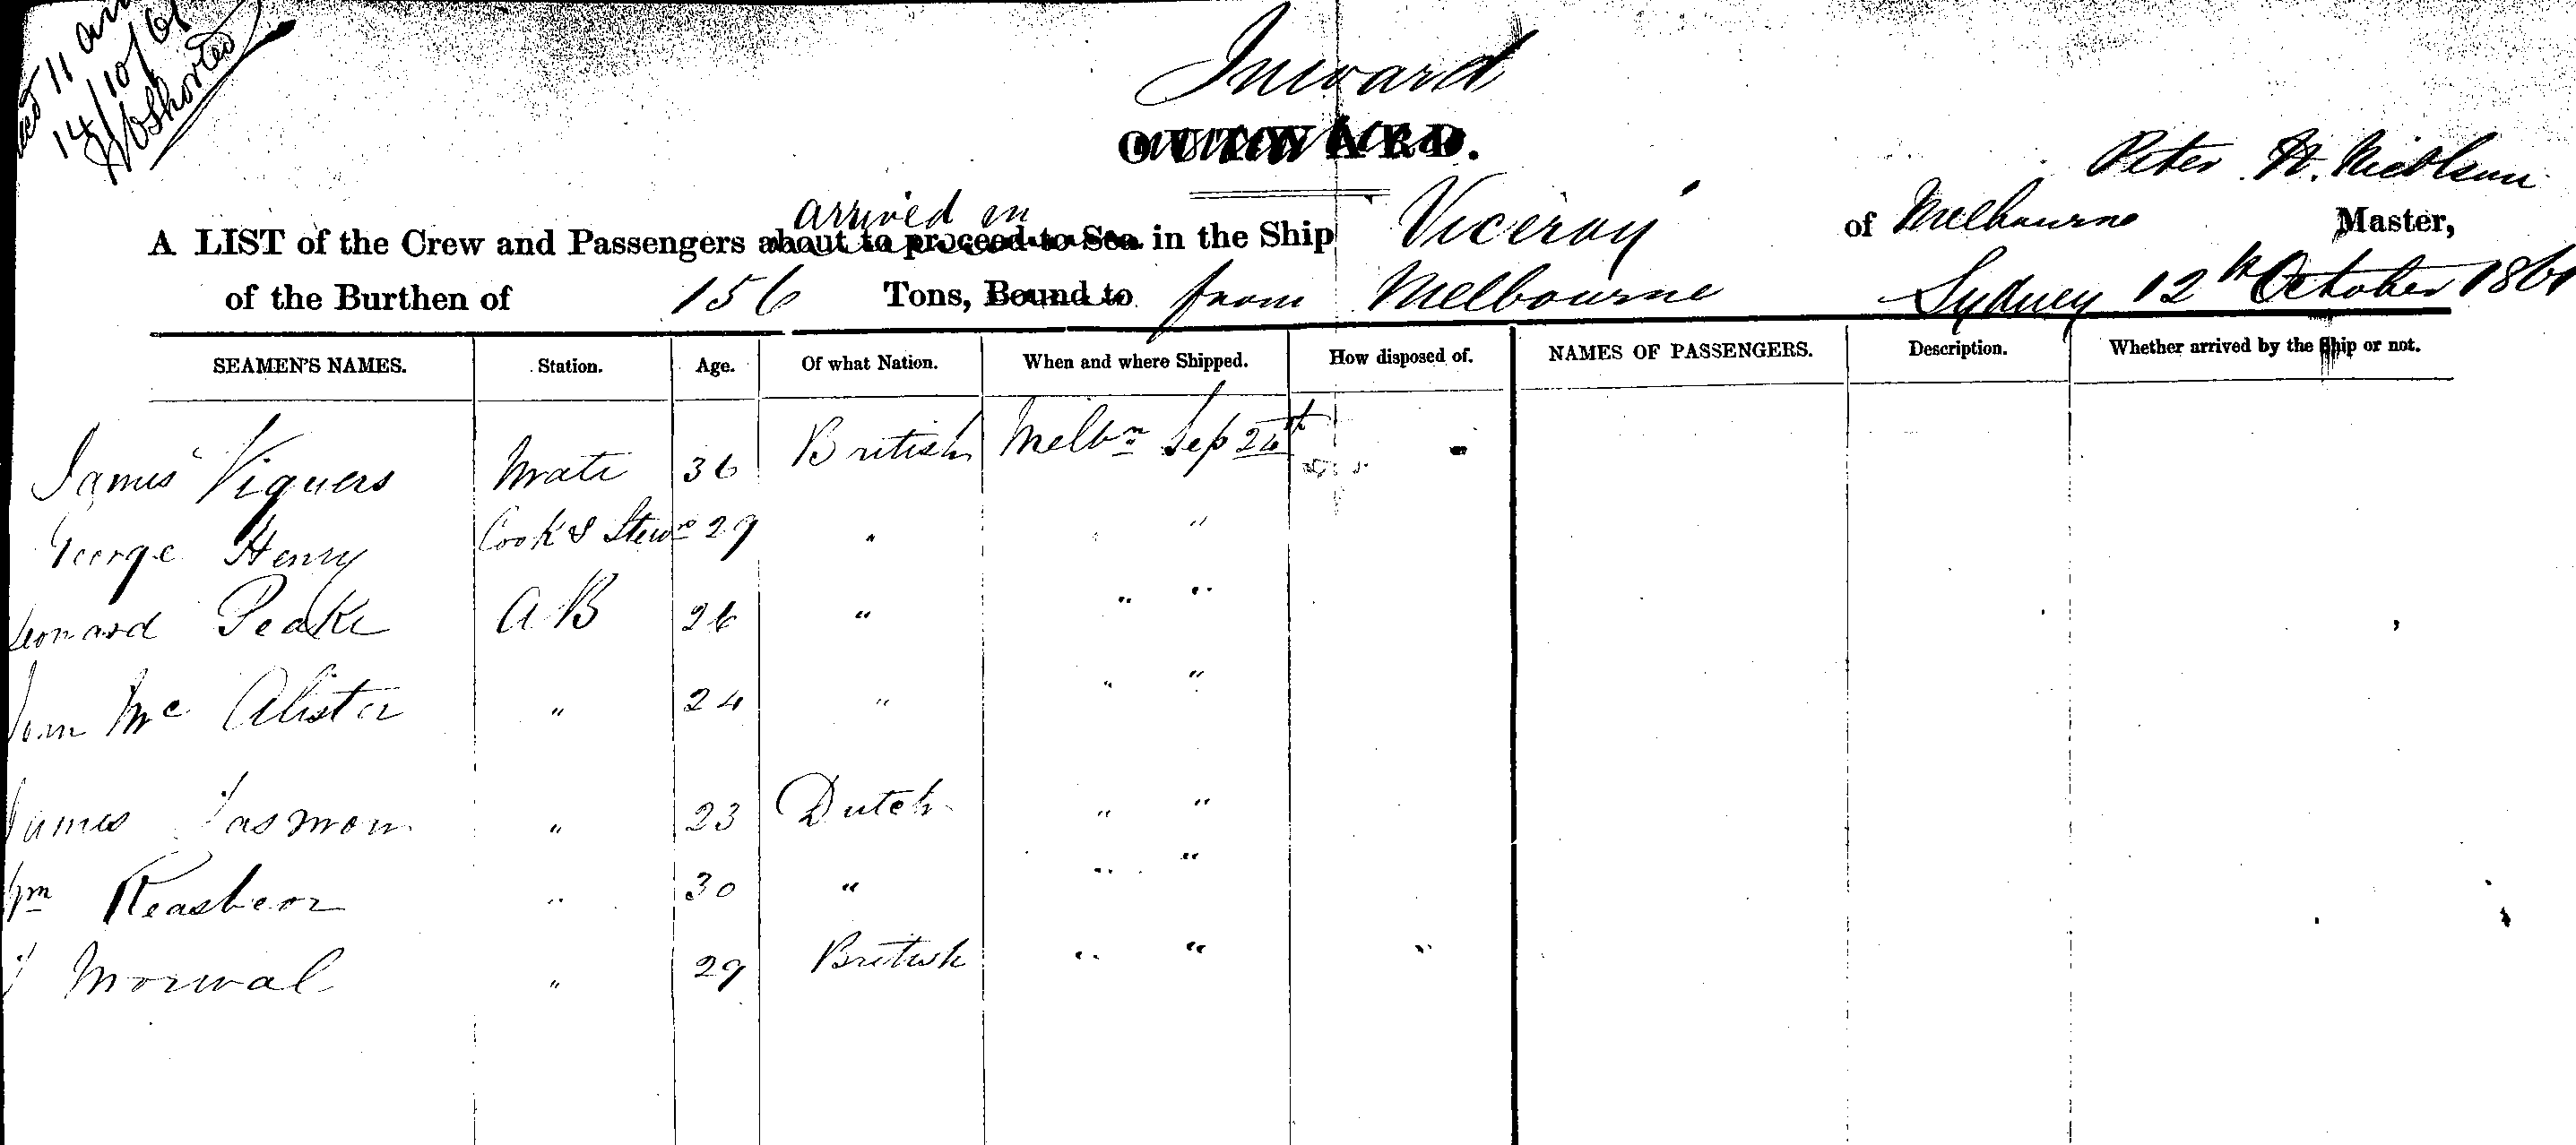 11 am
14/10/61
Inward
OUTWARD.
Peter H. Nicolson
arrived in
A LIST of the Crew and Passengers about to proceed to Sea in the Ship Viceroy of Melbourne Master,
of the Burthen of 156 Tons, Bound to from Melbourne Sydney 12th October 1861
SEAMEN'S NAMES. Station. Age. Of what Nation. When and where Shipped. How disposed of. NAMES OF PASSENGERS. Description. Whether arrived by the Ship or not.
James Viguers Mate 36 British Melbn Sep
George Henry Cook & Stewd 29 " "
Leonard Peake AB 26 " " "
Mc Alister " 24 " " "
James Tasmon " 23 Dutch " "
Wm " 30 " " "
Morwal " 29 British " "